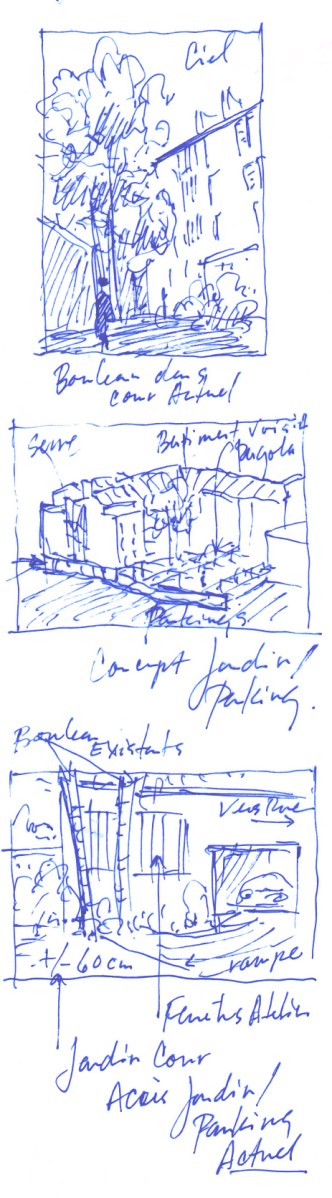 Ciel
Bouleau dans
cour Actuel
Serre
Batiment Voisin
Pergola
Parkings
Concept Jardin/
Parking.
Bouleau Existants
Vers Rue
+/- 60 cm
rampe
Fenêtres Atelier
Jardin Cour
Accès Jardin/
Parking
Actuel